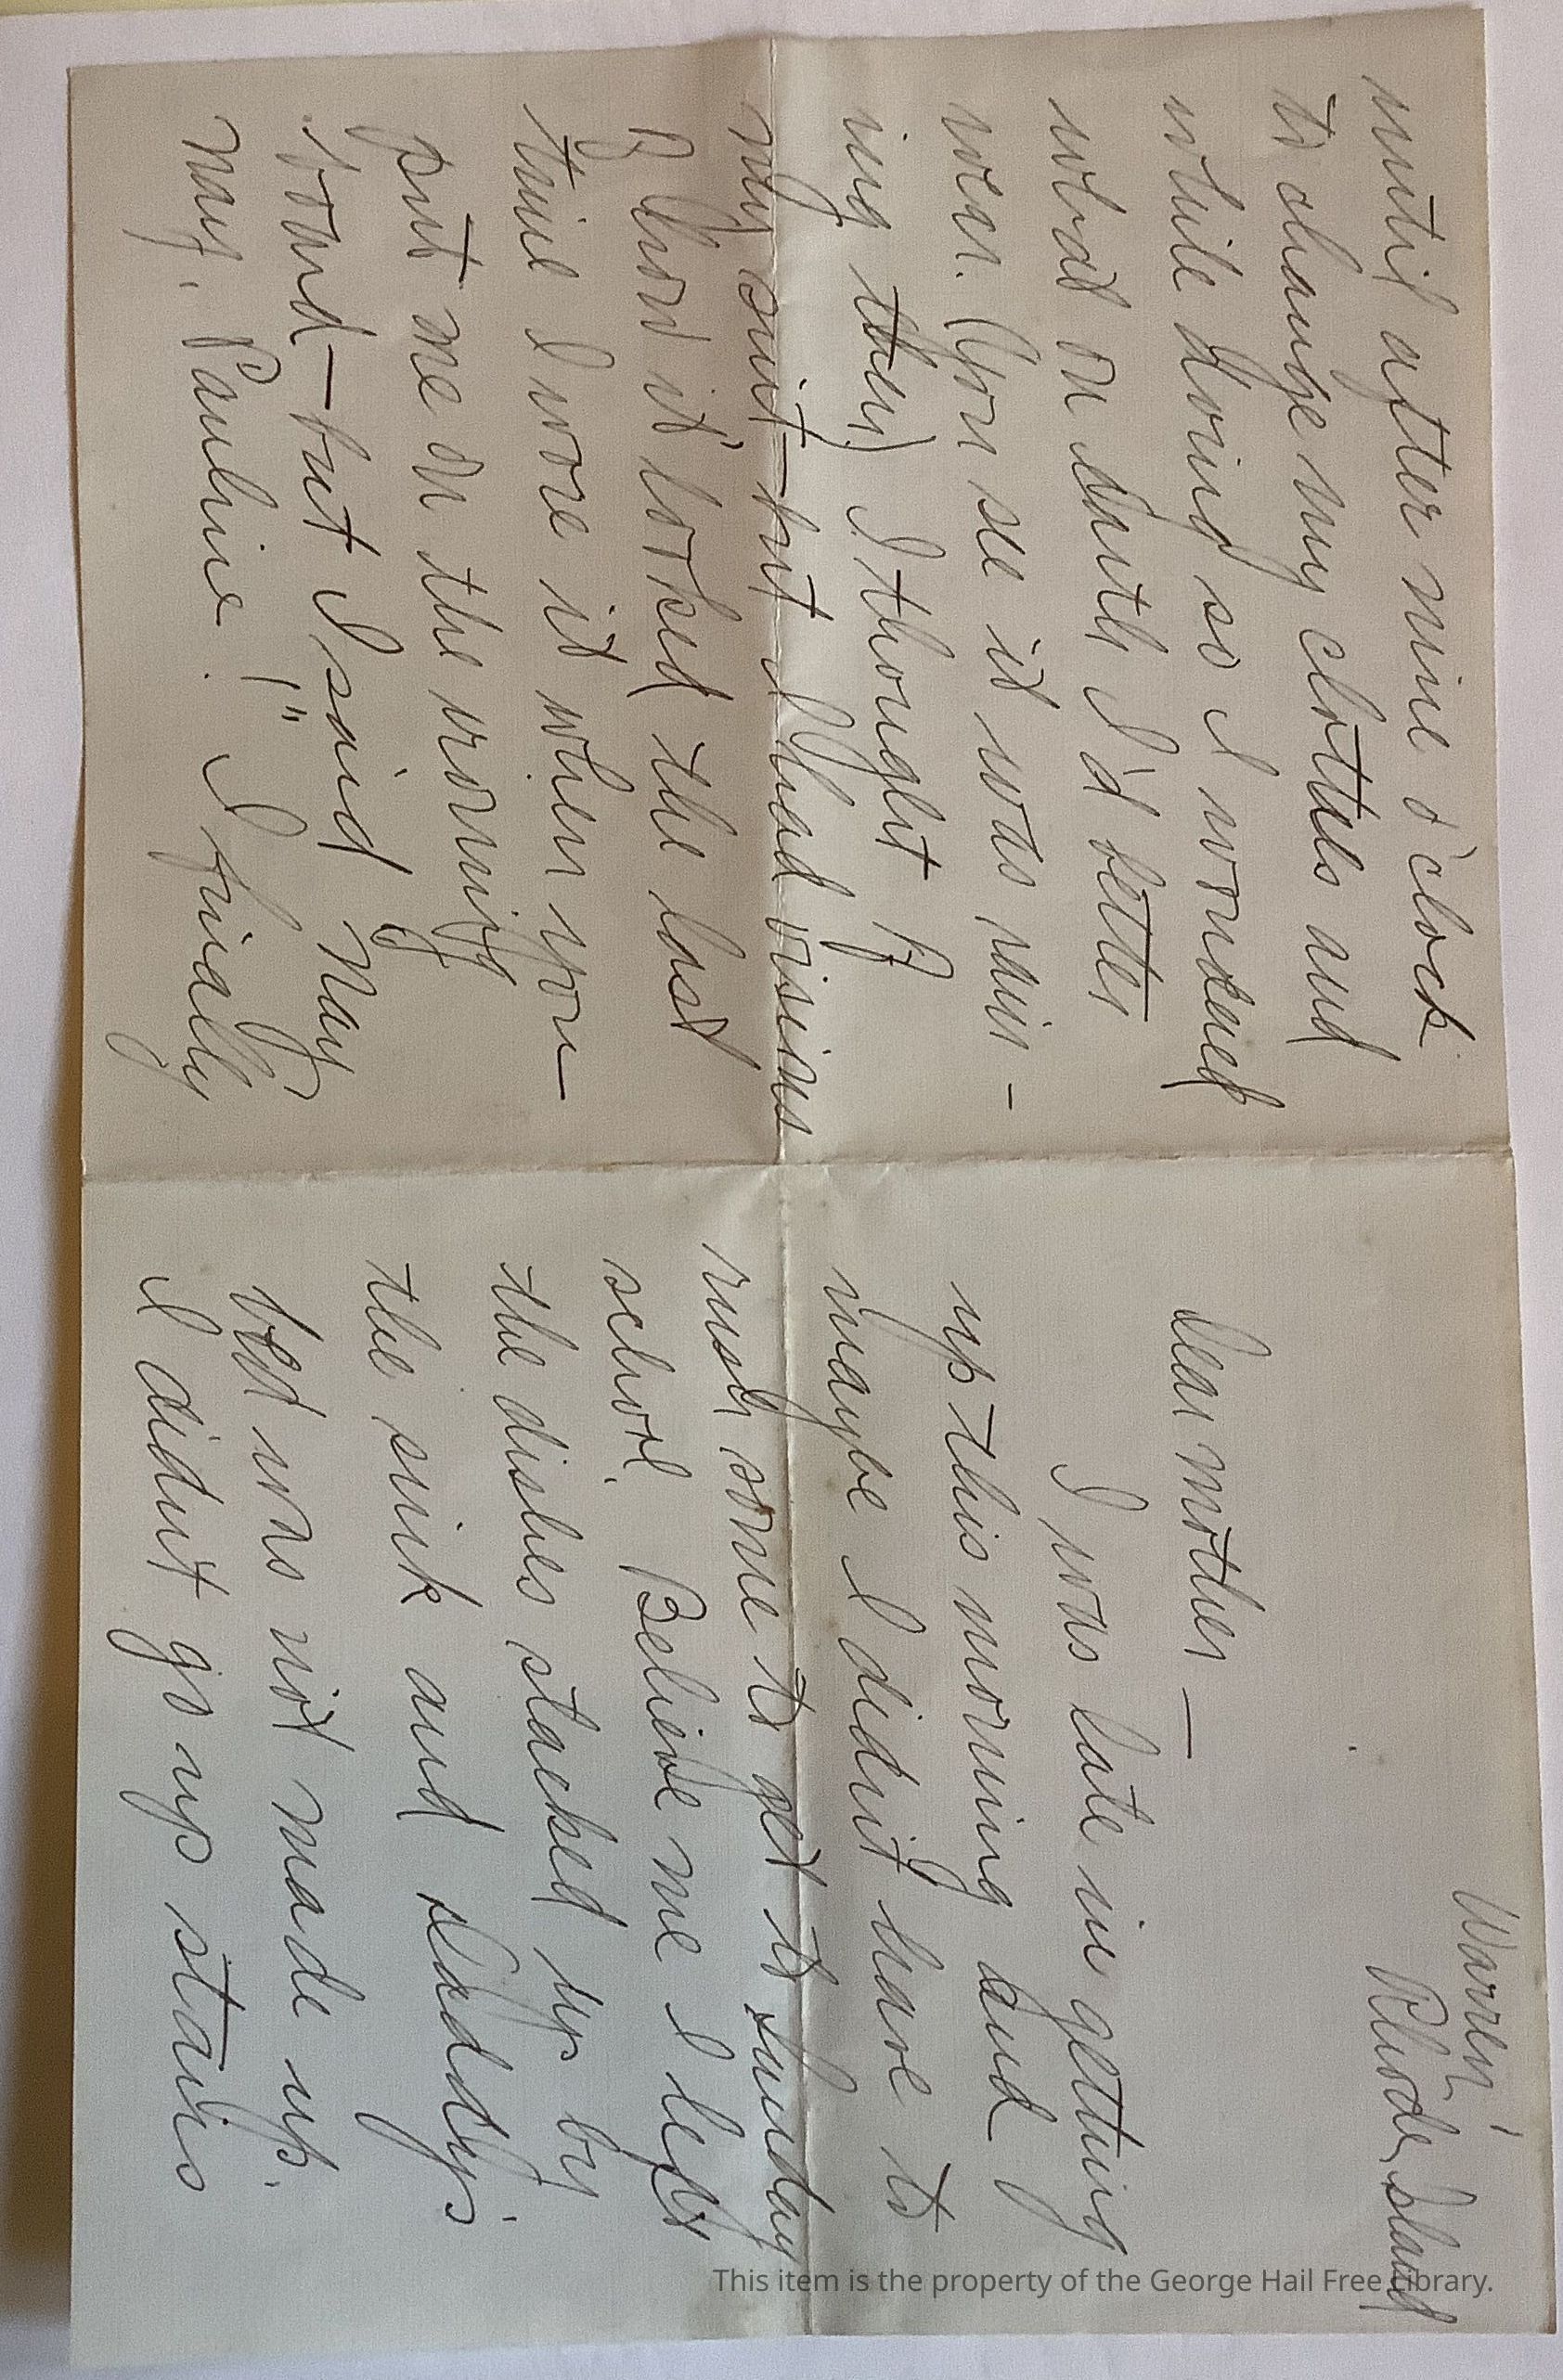 Warren,
Rhode Island
Dear Mother —
I was late in getting
up this morning and
maybe I didn't have to
rush some to get to Sunday
school. Believe me I left
the dishes stacked up by
the sink and Daddy's
bed was not made up.
I didn't go up stairs
until after nine o'clock
to change my clothes and
while doing so I wondered
what on earth I'd better
wear. (You see it was rain-
ing then) I thought of
my suit – but I had visions
of how it looked the last
time I wore it when you
put me on the vomiting
board – but I said "Nay
nay, Pauline!" I finally
This item is the property of the George Hail Free Library.